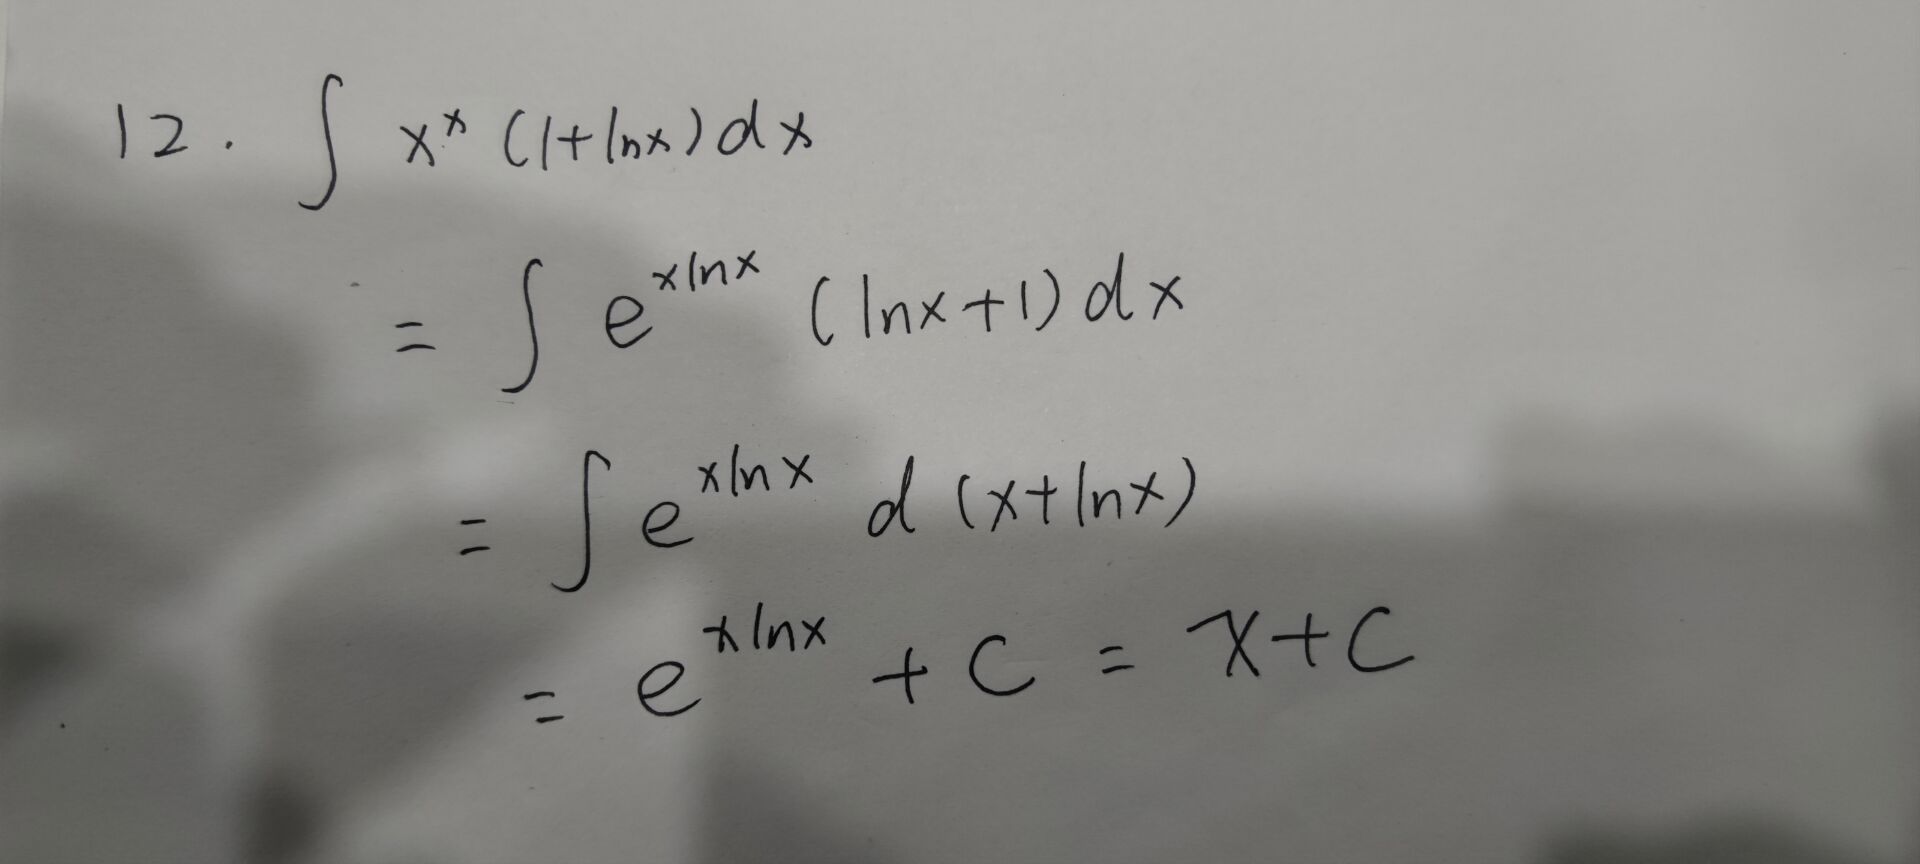 12. ∫ x^x (1+lnx) dx
= ∫ e^{xlnx} (lnx+1) dx
= ∫ e^{xlnx} d (x+lnx)
= e^{xlnx} + C = x+C